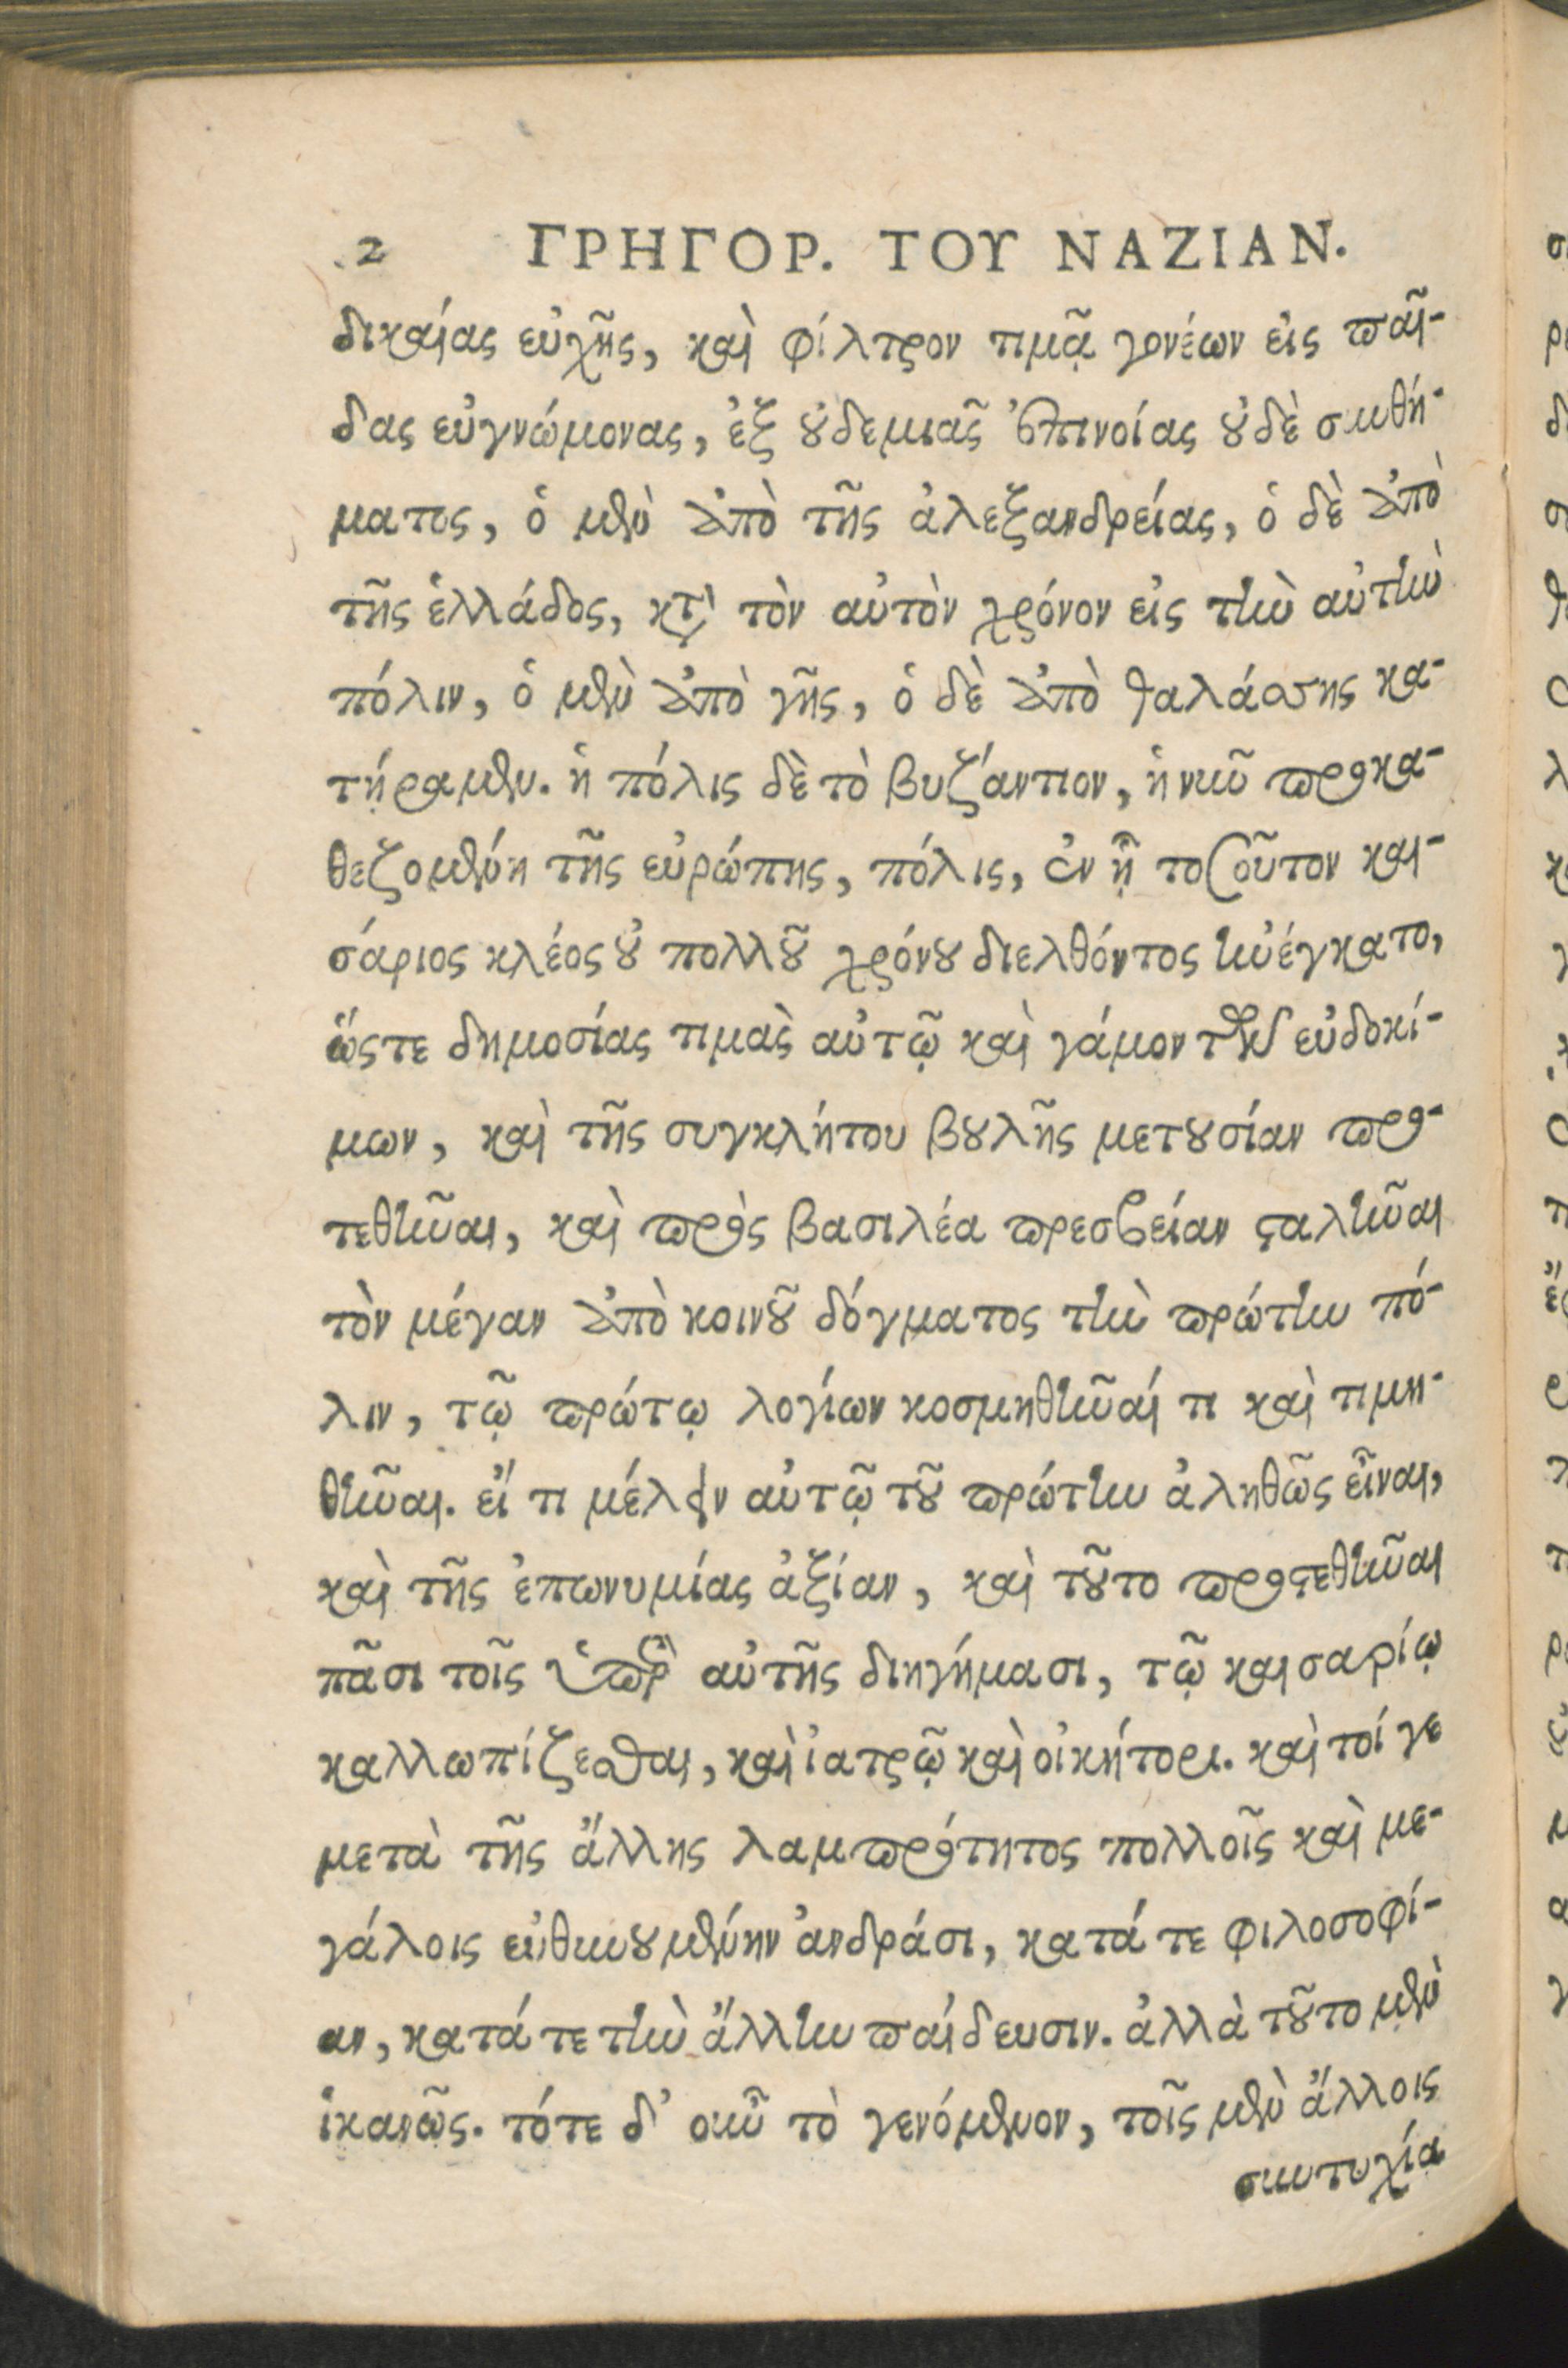 2 ΓΡΗΓΟΡ. ΤΟΥ ΝΑΖΙΑΝ.
δικαίας εὐχῆς, καὶ φίλτρον τιμᾷ γονέων εἰς παῖ-
δας εὐγνώμονας, ἐξ οὐδεμιᾶς ἐπινοίας οὐδὲ συνθή-
ματος, ὁ μὲν ἀπὸ τῆς ἀλεξανδρείας, ὁ δὲ ἀπὸ
τῆς ἑλλάδος, κτ̀ τὸν αὐτὸν χρόνον εἰς τὴν αὐτὴν
πόλιν, ὁ μὲν ἀπὸ γῆς, ὁ δὲ ἀπὸ θαλάσσης κα-
τήραμεν. ἡ πόλις δὲ τὸ βυζάντιον, ἡ νῦν προκα-
θεζομένη τῆς εὐρώπης, πόλις, ἐν ᾗ τοσοῦτον και-
σάριος κλέος οὐ πολλοῦ χρόνου διελθόντος ἠνέγκατο,
ὥςτε δημοσίας τιμὰς αὐτῷ καὶ γάμον τῶν εὐδοκί-
μων, καὶ τῆς συγκλήτου βουλῆς μετουσίαν προ-
τεθῆναι, καὶ πρὸς βασιλέα πρεσβείαν σταλῆναι
τὸν μέγαν ἀπὸ κοινοῦ δόγματος τὴν πρώτην πό-
λιν, τῷ πρώτῳ λογίων κοσμηθῆναί τι καὶ τιμη-
θῆναι. εἴ τι μέλειν αὐτῷ τοῦ πρώτην ἀληθῶς εἶναι,
καὶ τῆς ἐπωνυμίας ἀξίαν, καὶ τοῦτο προστεθῆναι
πᾶσι τοῖς ὑπὲρ αὐτῆς διηγήμασι, τῷ καισαρίῳ
καλλωπίζεσθαι, καὶ ἰατρῷ καὶ οἰκήτορι. καὶ τοί γε
μετὰ τῆς ἄλλης λαμπρότητος πολλοῖς καὶ με-
γάλοις εὐθηνουμένην ἀνδράσι, κατά τε φιλοσοφί-
αν, κατά τε τὴν ἄλλην παίδευσιν. ἀλλὰ τοῦτο μὲν
ἱκανῶς. τότε δ' οὖν τὸ γενόμενον, τοῖς μὲν ἄλλοις
συντυχία